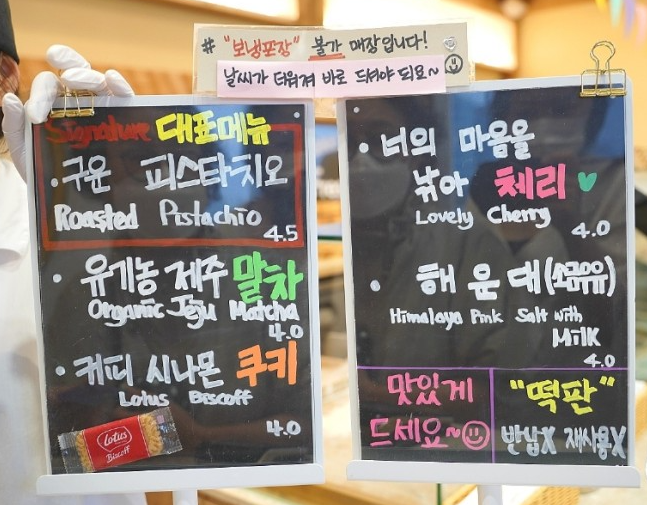 # "보냉포장" 불가 매장입니다!
날씨가 더워져 바로 드셔야 되요~
Signature 대표메뉴
· 구운 피스타치오
Roasted Pistachio
4.5
· 유기농 제주 말차
Organic Jeju Matcha
4.0
· 커피 시나몬 쿠키
Lotus Biscoff
4.0
Lotus
Biscoff
· 너의 마음을
낚아 체리
Lovely Cherry
4.0
· 해운대(소금우유)
Himalaya Pink Salt with
Milk
4.0
맛있게
드세요~
"떡판"
반납X 재사용X